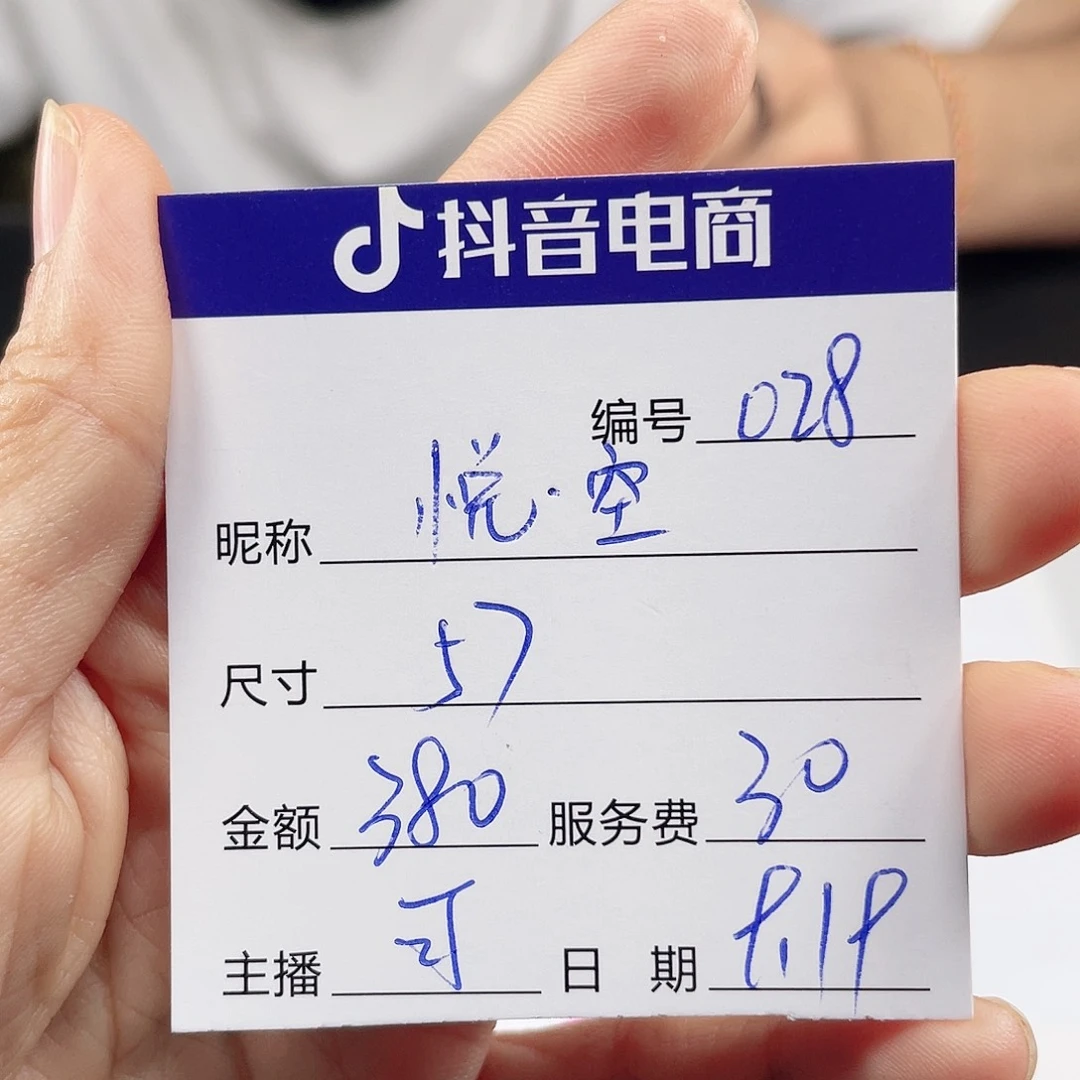 抖音电商
编号 028
昵称 悦·空
尺寸 57
金额 380 服务费 30
主播 可 日期